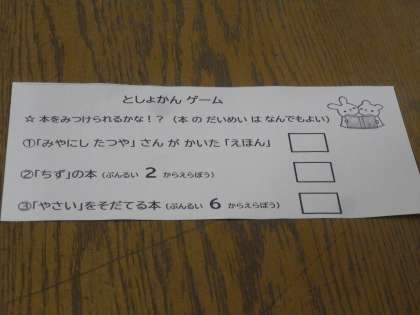 としょかん ゲーム
☆ 本をみつけられるかな！？（本 の だいめい は なんでもよい）
①「みやにし たつや」 さん が かいた 「えほん」
②「ちず」の本 （ぶんるい 2 からえらぼう）
③「やさい」をそだてる本 （ぶんるい 6 からえらぼう）